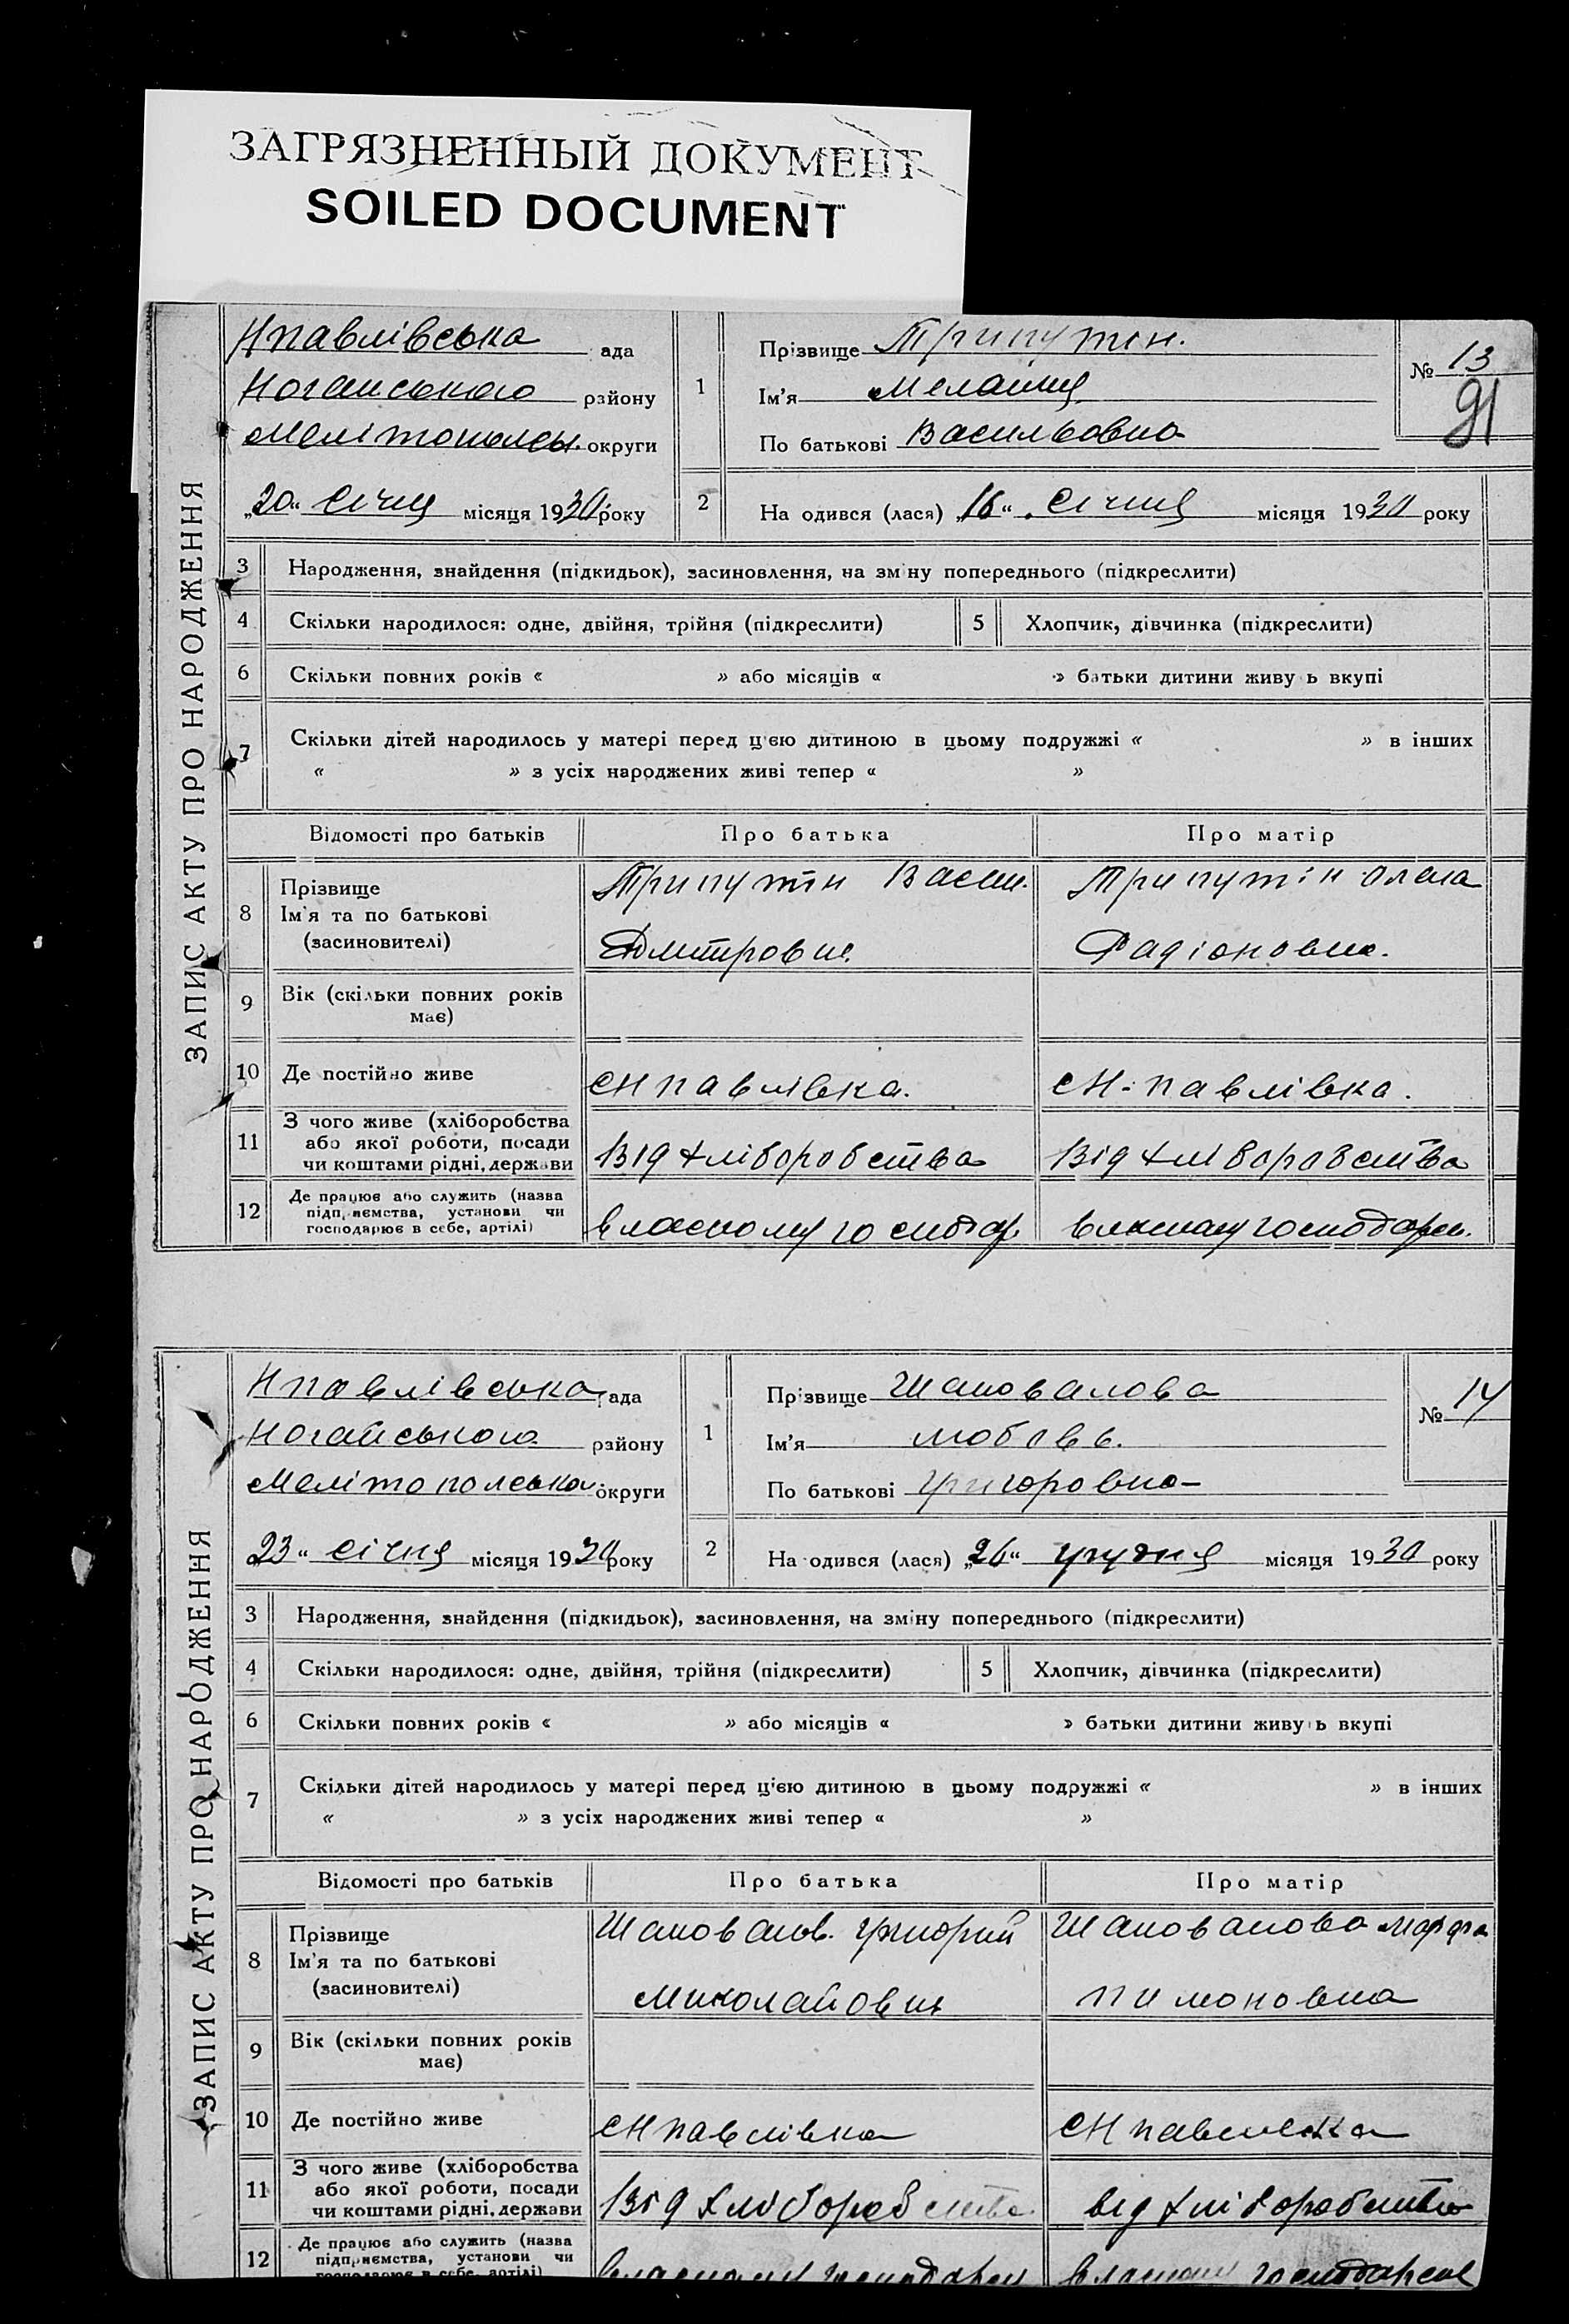 ЗАГРЯЗНЕННЫЙ ДОКУМЕНТ
SOILED DOCUMENT
ЗАПИС АКТУ ПРО НАРОДЖЕННЯ
Нпавлівська ада
Ногайського району
Мелітопольсь. округи
„20“ січня місяця 1930 року
1
Прізвище Трипутін.
Ім'я Меланія
По батькові Васильовна
№ 13
91
2
На одився (лася) „16“ січня місяця 1930 року
3 Народження, знайдення (підкидьок), засиновлення, на зм ну попереднього (підкреслити)
4 Скільки народилося: одне, двійня, трійня (підкреслити) 5 Хлопчик, дівчинка (підкреслити)
6 Скільки повних років « » або місяців « » батьки дитини живу ь вкупі
7 Скільки дітей народилось у матері перед цією дитиною в цьому подружжі « » в інших
« » з усіх народжених живі тепер « »
Відомості про батьків Про батька Про матір
8 Прізвище
Ім'я та по батькові
(засиновителі)
Трипутін Васил.
Дмитрович.
Трипутін Олена
Радіоновна.
9 Вік (скільки повних років
має)
10 Де постійно живе СНпавлівка. СН-павлівка.
11 З чого живе (хліборобства
або якої роботи, посади
чи коштами рідні, держави
Від хліборобства Від хліборобства
12 Де працює або служить (назва
підприємства, установи чи
господарює в себе, артілі)
власному господар. власному господарс.
ЗАПИС АКТУ ПРО НАРОДЖЕННЯ
Нпавлівська ада
Ногайського району
Мелітопольської округи
„23“ січня місяця 1930 року
1
Прізвище Шаповалова
Ім'я Любовь.
По батькові Григоровна
№ 14
2
На одився (лася) „26“ грудня місяця 1930 року
3 Народження, знайдення (підкидьок), засиновлення, на зміну попереднього (підкреслити)
4 Скільки народилося: одне, двійня, трійня (підкреслити) 5 Хлопчик, дівчинка (підкреслити)
6 Скільки повних років « » або місяців « » батьки дитини живу ь вкупі
7 Скільки дітей народилось у матері перед цією дитиною в цьому подружжі « » в інших
« » з усіх народжених живі тепер « »
Відомості про батьків Про батька Про матір
8 Прізвище
Ім'я та по батькові
(засиновителі)
Шаповалов. Григорий
Миколайович
Шаповалова Марфа
Пимоновна
9 Вік (скільки повних років
має)
10 Де постійно живе СНпавлівка СНпавлівка
11 З чого живе (хліборобства
або якої роботи, посади
чи коштами рідні, держави
Від хліборобства від хліборобства
12 Де працює або служить (назва
підприємства, установи чи
господарює в себе, артілі)
власному господарс власному господарсі